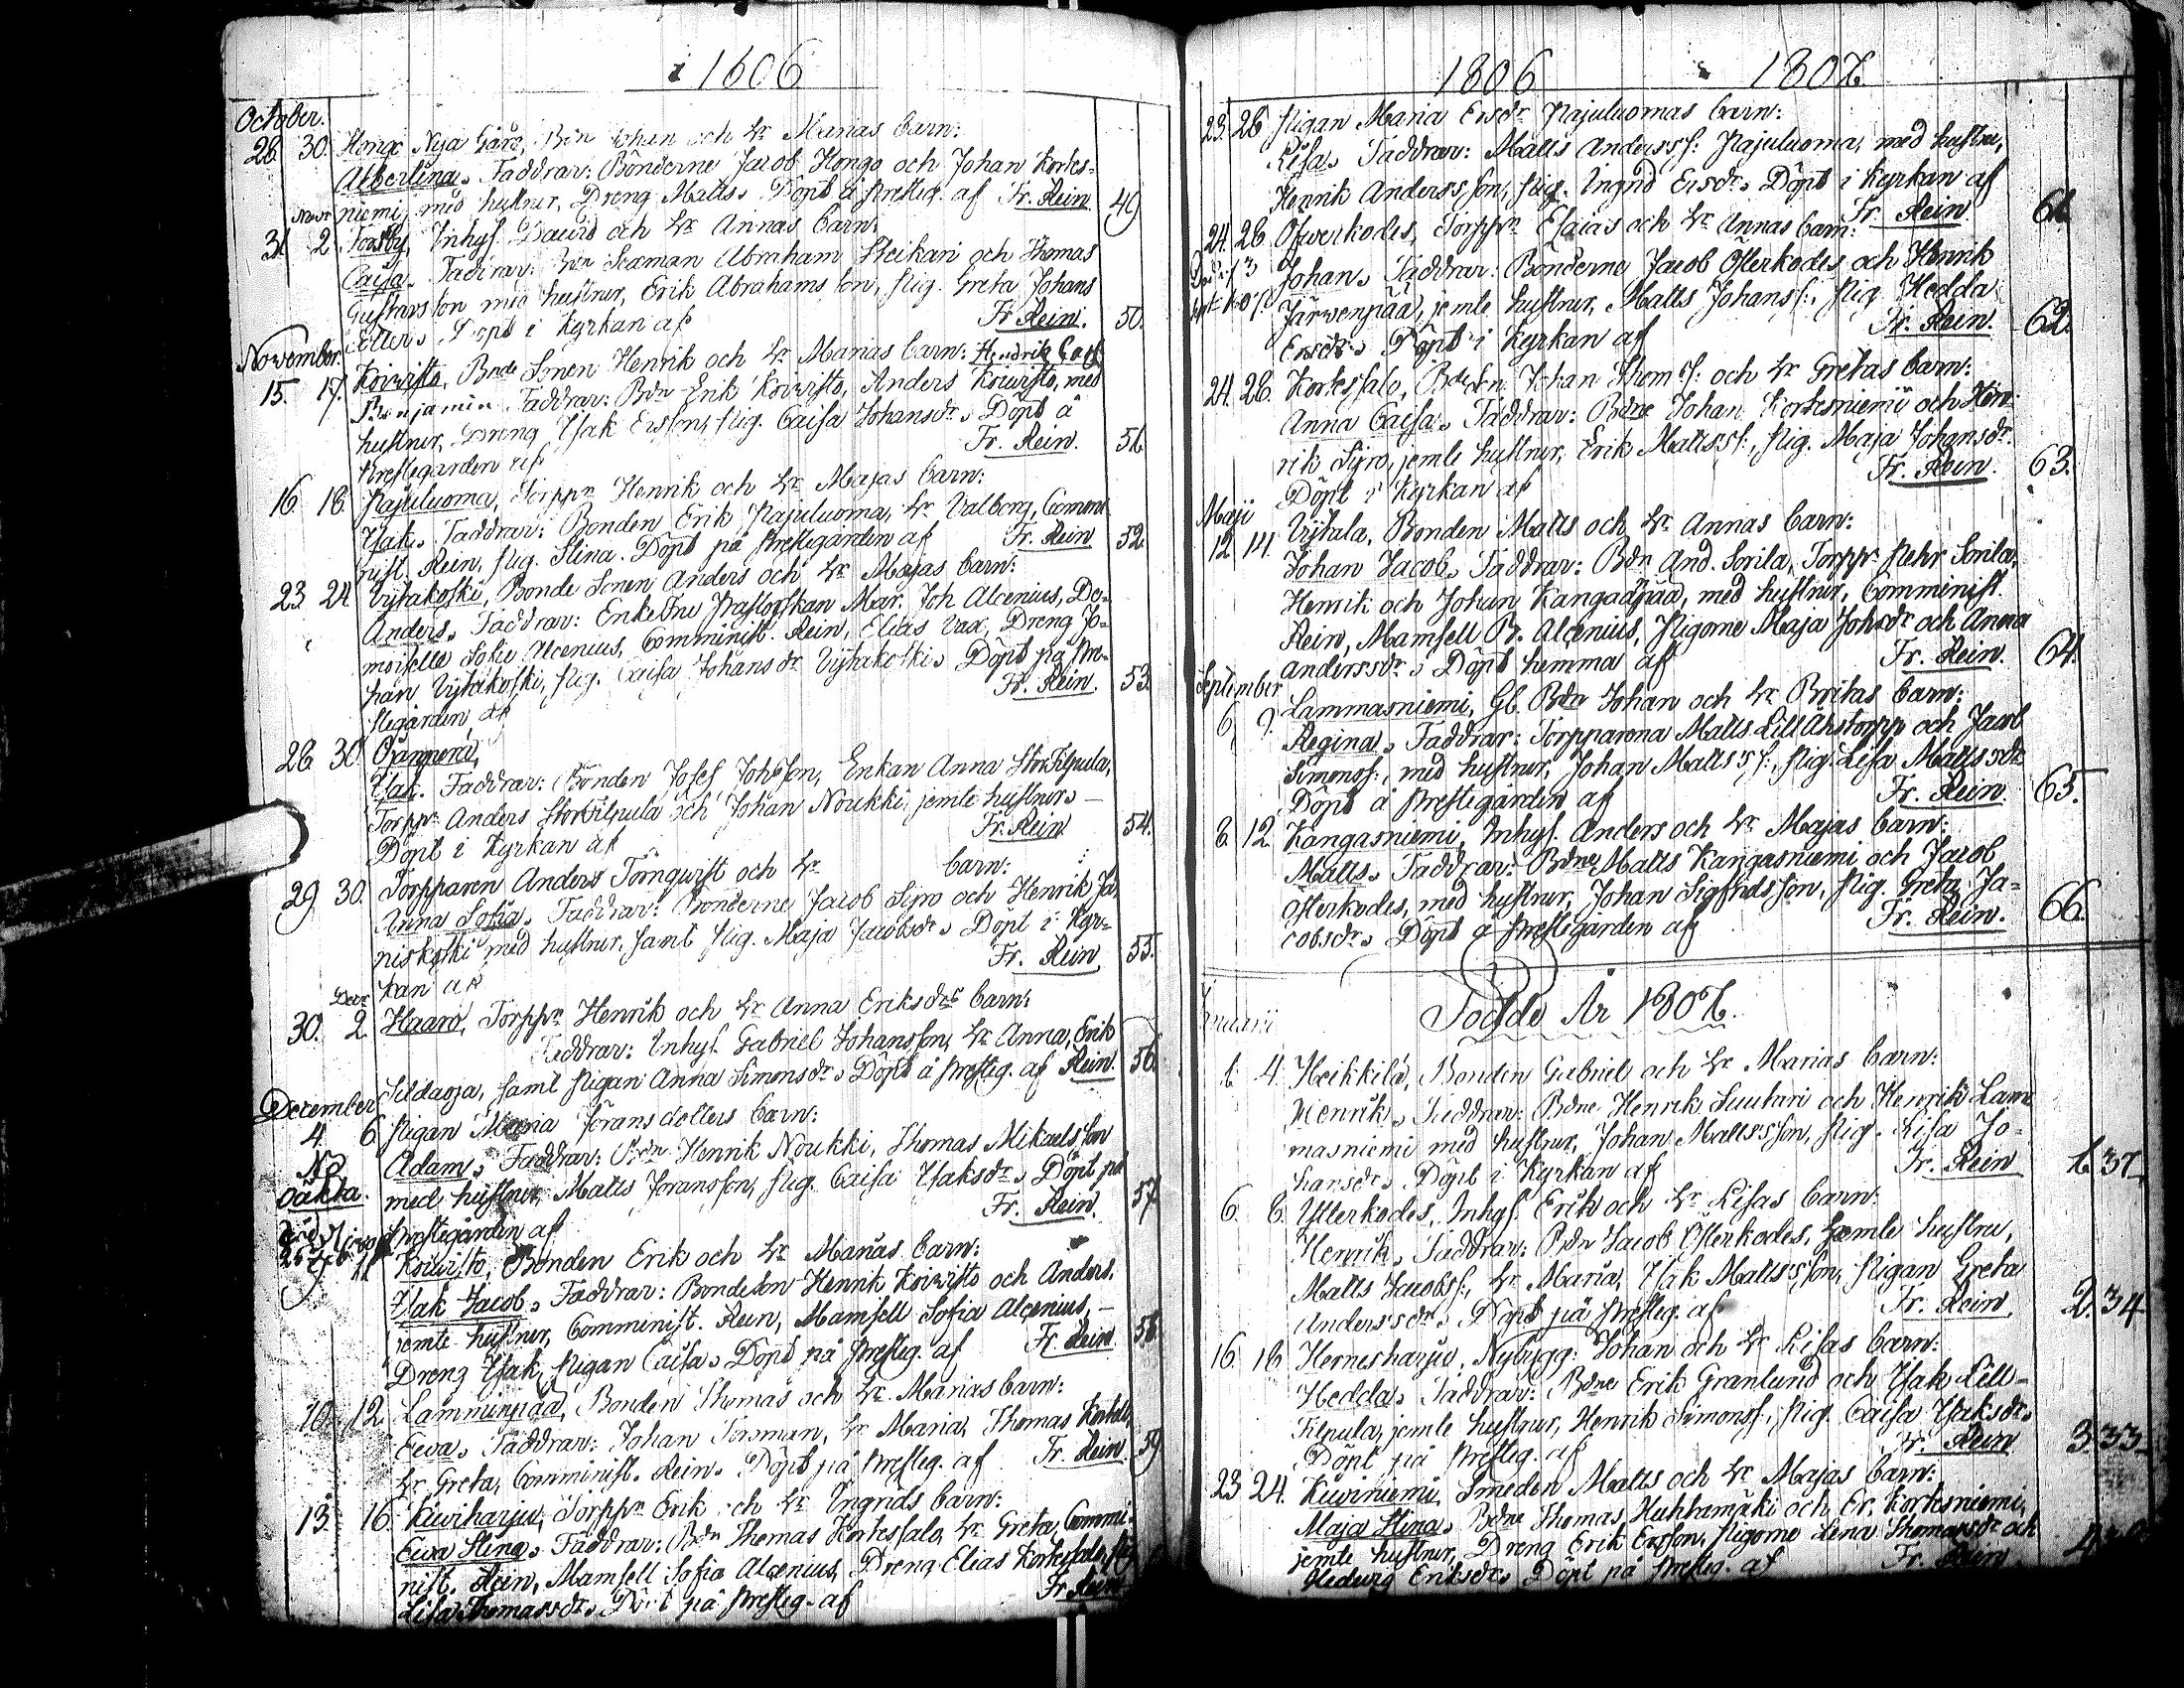 i 1806
October.
28. 30. Hongo Nya Gård, Bdn Johan och hr Marias barn:
Albertina. Faddrar: Bönderne Jacob Hongo och Johan Kortes-
niemi, med hustrur, Dreng Matts. Döpt å Presteg. af Fr. Rein 49
Novr
31. 2 Forsby, Inhys. David och hr Annas barn:
Caisa. Faddrar: Bdn Seaman Abraham Sleikari och Thomas
Gustavsson med hustrur, Erik Abrahamsson, Pig. Greta Johans
dotter. Döpt i Kyrkan af Fr. Rein. 50.
November.
15. 17. Koivisto, Bnde Sonen Henrik och hr Marias barn: Hendrik Carl
Benjamin Faddrar: Bdn Erik Koivisto, Anders Koivisto, med
hustrur, Dreng Isak Ersson, Pig. Caisa Johansdr. Döpt å
Prestegården af Fr. Rein. 51.
16. 18. Pajuluoma, Torppn Henrik och hr Majas barn:
Isak. Faddrar: Bonden Erik Pajuluoma, hr Valborg, Commi
nist. Rein, Pig. Stina. Döpt på Prestegården af Fr. Rein 52.
23. 24. Vijtakoski, Bonde Sonen Anders och hr Majas barn:
Anders. Faddrar: EnkeFru Pastorskan Mar. Joh Alcenius, De-
moiselle Sofie Alcenius, Comminist. Rein, Elias Vax, Dreng Jo-
han Vijtakoski, Pig. Caisa Johansdr Vijtakoski. Döpt på Pre-
stegården af Fr. Rein. 53.
28. 30. Ojanperä,
Isak. Faddrar: Bonden Josef Johsson, Enkan Anna StorKilpula,
Torppn Anders Storkilpula och Johan Noukki jemte hustrur.
Döpt i Kyrkan af Fr. Rein 54.
29. 30. Torpparen Anders Törnqvist och hr barn:
Anna Sofia. Faddrar: Bönderne Jacob Sipro och Henrik Ja
niskoski med hustrur. samt Pig. Maja Jacobsdr. Döpt i Kyr-
kan af Fr. Rein 55.
Decr
30. 2. Haaro, Torppn Henrik och hr Anna Eriksdrs barn:
Faddrar: Inhys. Gabriel Johansson, hr Anna, Erik
Sildaoja, samt Pigan Anna Simonsdr. Döpt å Presteg. af Rein. 56.
December
4. 6. Pigan Maria Göransdotters barn:
Adam. Faddrar: Bdn Henrik Noukki, Thomas Mikaelsson
No
oäkta. med hustrur, Matts Göransson, Pig. Caisa Isaksdr. Döpt på
Prestegården af Fr. Rein. 57
Koivisto, Bonden Erik och hr Marias barn:
Isak Jacob. Faddrar: Bondeson Henrik Koivisto och Anders,
jemte hustrur, Comminist. Rein, Mamsell Sofia Alcenius,
Dreng Isak, Pigan Caisa. Döpt på Presteg. af Fr. Rein. 58.
10. 12 Lamminpää, Bonden Thomas och hr Marias barn:
Eewa. Faddrar: Johan Forsman, hr Maria, Thomas
hr Greta, Comminist. Rein. Döpt på Presteg. af Fr. Rein. 59
13. 16. Kiwiharju, Torppn Erik och hr Ingrids barn:
Ewa Stina. Faddrar: Bdn Thomas Kortessalo, hr Greta, Commi-
nist. Rein, Mamsell Sofia Alcenius, Dreng Elias Kortessalo,
Lisa Thomassdr. Döpt på Presteg. af Fr. Rein
1806 1807.
23. 26 Pigan Maria Ersdr Pajuluomas barn:
Lisa. Faddrar: Matts Anderss: Pajuluoma, med hustru,
Henrik Andersson, Pig. Ingrid Ersdr. Döpt i Kyrkan af
Fr. Rein. 61.
24. 26 Öfwerkodes, Torppn Esaias och hr Annas barn:
Johan. Faddrar: Bönderne Jacob Österkodes och Henrik
Järwenpää, jemte hustrur, Matts Johanss:, Pig Hedda
Ersdr. Döpt i Kyrkan af Fr. Rein. 62.
24. 28. Kortessalo, Bdesn Johan Thoms: och hr Gretas barn:
Anna Caisa. Faddrar: Bdne Johan Kortesniemi och Hen-
rik Sipro, jemte hustrur, Erik Mattss:, Pig. Maja Johansdr.
Döpt i Kyrkan af Fr. Rein. 63.
Maji
12. 14. Vijtala, Bonden Matts och hr Annas barn:
Johan Jacob. Faddrar: Bdn And. Sorila, Torppr Pehr Sorila,
Henrik och Johan Kangadpää, med hustrur, Comminist.
Rein, Mamsell B. Alcenius, Pigorne Maja Johsdr och Anna
Anderssdr. Döpt hemma af Fr. Rein. 64.
September
6. 9. Lammasniemi, Gl. Bdn Johan och hr Britas barn:
Regina. Faddrar: Torpparena Matts LillÅhstorpp och Jacob
Simonss:, med hustrur, Johan Mattss:, Pig. Lisa Mattssdr
Döpt å Prestegården af Fr. Rein. 65.
8. 12. Kangasniemi, Inhys. Anders och hr Majas barn:
Matts. Faddrar: Bdne Matts Kangasniemi och Jacob
Österkodes, med hustrur, Johan Sigfridsson, Pig. Greta Ja-
cobsdr. Döpt å Prestegården af Fr. Rein. 66.
Födde År 1807.
Januarii
1. 4. Heikkilä, Bonden Gabriel och hr Marias barn:
Henrik. Faddrar: Bdne Henrik Suutari och Henrik Lam
masniemi med hustrur, Johan Mattsson, Pig. Lisa Jo-
hansdr. Döpt i Kyrkan af Fr. Rein 1. 37.
6. 8. Ytterkodes, Inhys. Erik och hr Lisas barn:
Henrik. Faddrar: Bdn Jacob Österkodes, jemte hustru,
Matts Jacobss:, hr Maria, Isak Mattsson, Pigan Greta
Anderssdr. Döpt på Presteg. af Fr. Rein. 2. 34
16. 18. Hernesharju, Nybygg: Johan och hr Lisas barn:
Hedda. Faddrar: Bdne Erik Granlund och Isak Lill-
Kilpula, jemte hustrur, Henrik Simonss:, Pig. Caisa Isaksdr.
Döpt på Presteg. af Fr. Rein 3. 33.
23 24. Kiviniemi, Smeden Matts och hr Majas barn:
Maja Stina. Bdne Thomas Huhtamäki och Er. Kortesniemi,
jemte hustrur, Dreng Erik Ersson, Pigorne Lena Thomassdr och
Hedwig Eriksdr. Döpt på Presteg. af Fr. Rein